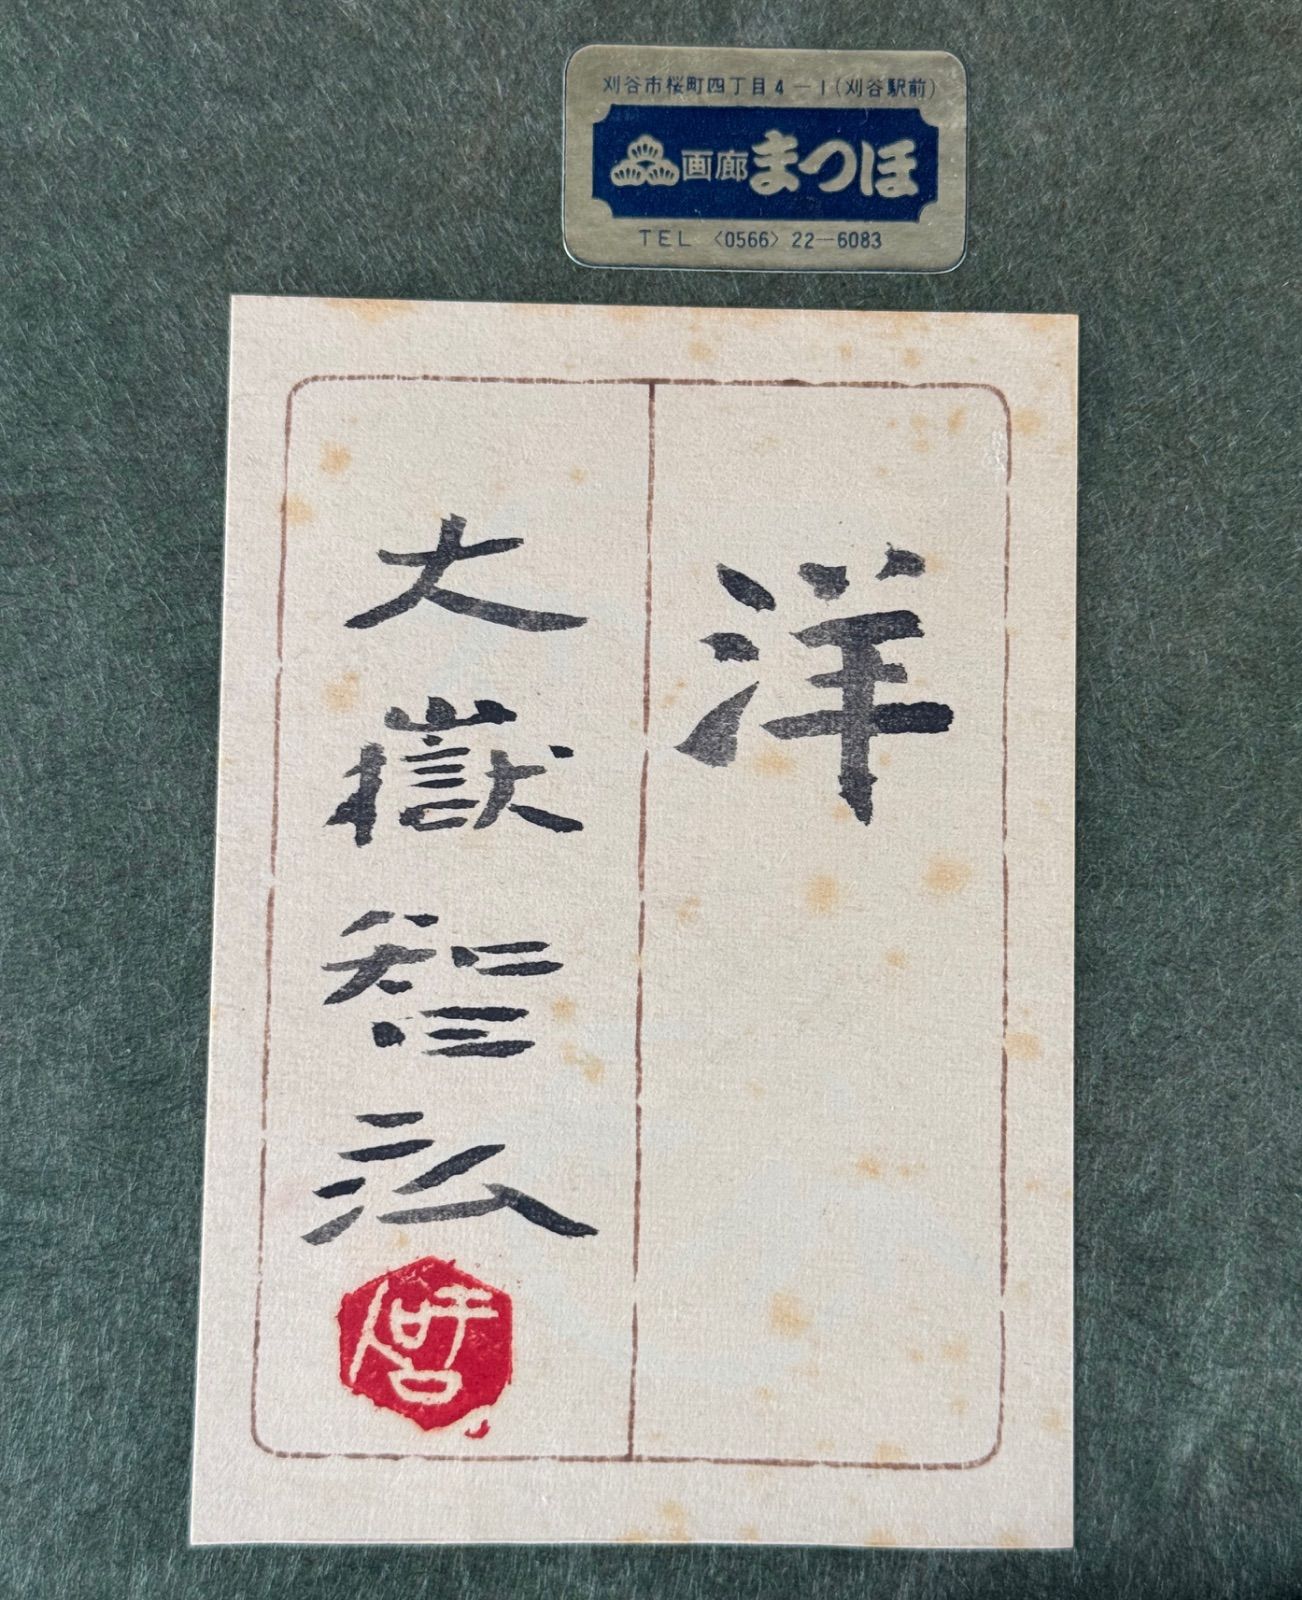 刈谷市桜町四丁目4-1(刈谷駅前)
画廊まつほ
TEL <0566> 22-6083
洋
大嶽智弘